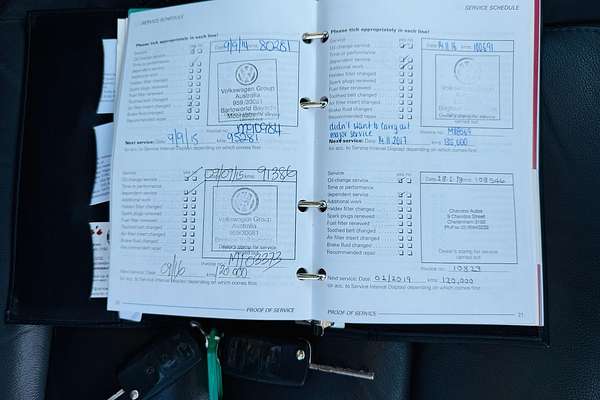 SERVICE SCHEDULE
Please tick appropriately in each line!
Service yes no
Oil change service
Time or performance
dependent service
Additional work
Haldex filter changed
Spark plugs renewed
Fuel filter renewed
Toothed belt changed
Air filter insert changed
Brake fluid changed
Recommended repair
Date 9/9/14 kms 80281
Volkswagen Group
Australia
Invoice no.
Next service: Date 9/9/15 95281
or acc. to Service Interval Display depending on which comes first
Service yes no
Oil change service
Time or performance
dependent service
Additional work
Haldex filter changed
Spark plugs renewed
Fuel filter renewed
Toothed belt changed
Air filter insert changed
Brake fluid changed
Recommended repair
09/07/15 kms 91386
Volkswagen Group
Australia
Dealer's stamp for service
Next service: Date 09/16 kms 120 000
or acc. to Service Interval Display depending on which comes first
20
PROOF OF SERVICE
SERVICE SCHEDULE
Please tick appropriately in each line!
Service yes no
Oil change service
Time or performance
dependent service
Additional work
Haldex filter changed
Spark plugs renewed
Fuel filter renewed
Toothed belt changed
Air filter insert changed
Brake fluid changed
Recommended repair
Date kms 100691
Dealer's stamp for service
carried out
Invoice no.
didn't want to carry out
major service
Next service: Date 14.11.2017 kms
or acc. to Service Interval Display depending on which comes first
Service yes no
Oil change service
Time or performance
dependent service
Additional work
Haldex filter changed
Spark plugs renewed
Fuel filter renewed
Toothed belt changed
Air filter insert changed
Brake fluid changed
Recommended repair
Date kms
Chandos Autos
5 Chandos Street
Cheltenham 3192
Dealer's stamp for service
carried out
Invoice no. 10829
Next service: Date 02/2019 kms 120,000
or acc. to Service Interval Display depending on which comes first
PROOF OF SERVICE
21